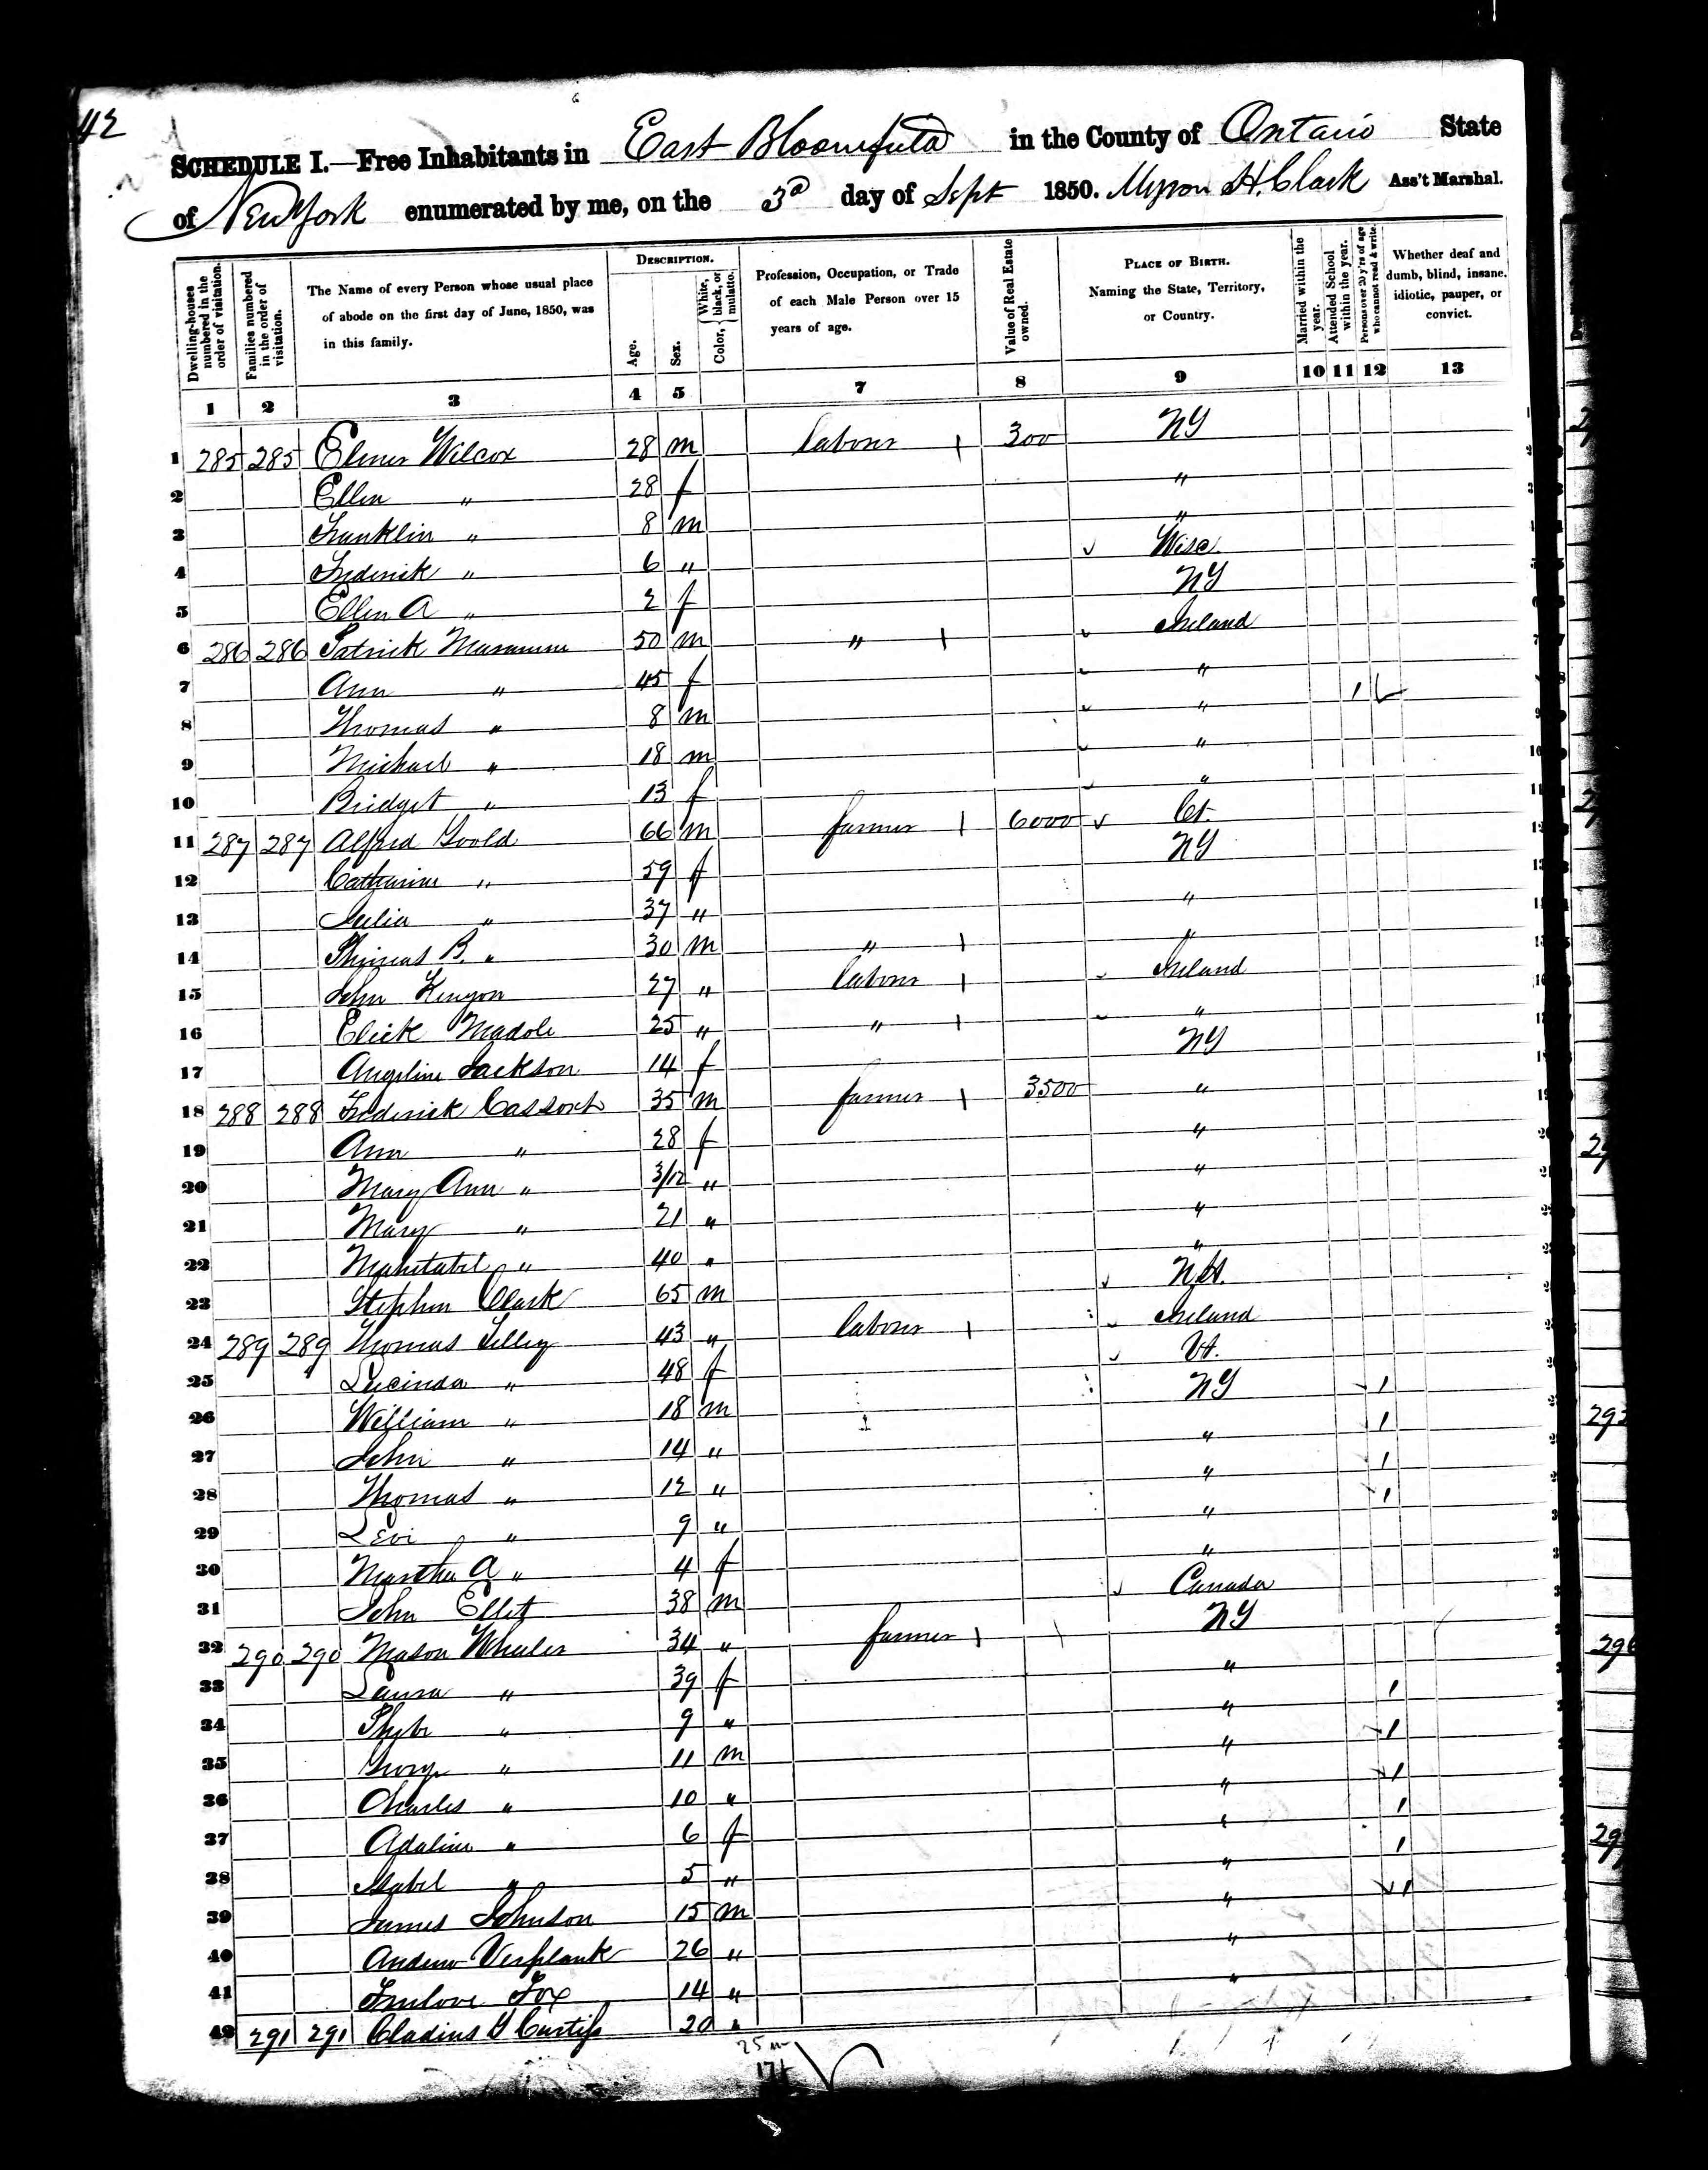 42
SCHEDULE I.—Free Inhabitants in East Bloomfield in the County of Ontario State
of New York enumerated by me, on the 3d day of Sept 1850. Myron H. Clark Ass't Marshal.
Dwelling-houses numbered in the order of visitation.
Families numbered in the order of visitation.
The Name of every Person whose usual place of abode on the first day of June, 1850, was in this family.
DESCRIPTION.
Age.
Sex.
Color, { White, black, or mulatto.
Profession, Occupation, or Trade of each Male Person over 15 years of age.
Value of Real Estate owned.
PLACE OF BIRTH. Naming the State, Territory, or Country.
Married within the year.
Attended School within the year.
Persons over 20 y'rs of age who cannot read & write.
Whether deaf and dumb, blind, insane, idiotic, pauper, or convict.
1 2 3 4 5 7 8 9 10 11 12 13
1 285 285 Elmer Wilcox 28 m labour 300 NY
2 Ellen " 28 f "
3 Franklin " 8 m "
4 Frederick " 6 " Wisc.
5 Ellen A " 2 f NY
6 286 286 Patrick 50 m " Ireland
7 Ann " 45 f " 1
8 Thomas " 8 m "
9 Michael " 18 m "
10 Bridget " 13 f "
11 287 287 Alfred Goold 66 m farmer 6000 Ct.
12 Catharine " 59 f NY
13 Julia " 37 " "
14 Thomas B. " 30 m " "
15 John Kenyon 27 " labour Ireland
16 Elick Madole 25 " " "
17 Angeline Jackson 14 f NY
18 288 288 Frederick Cassort 35 m farmer 3500 "
19 Ann " 28 f "
20 Mary Ann " 3/12 " "
21 Mary " 21 " "
22 Mahitabel " 40 " "
23 Stephen Clark 65 m N.H.
24 289 289 Thomas Tilley 43 " labour Ireland
25 Lucinda " 48 f Vt.
26 William " 18 m NY 1
27 John " 14 " " 1
28 Thomas " 12 " " 1
29 Levi " 9 " " 1
30 Martha A " 4 f "
31 John Ellet 38 m Canada
32 290 290 Mason Wheeler 34 " farmer NY
33 Laura " 39 f "
34 Phebe " 9 " " 1
35 George " 11 m " 1
36 Charles " 10 " " 1
37 Adaline " 6 f " 1
38 Isabel " 5 " " 1
39 James Johnson 15 m " 1
40 Andrew Verplank 26 " "
41 Truelove Fox 14 " "
42 291 291 Cladius G Curtiss 20 "
25 m
17 f